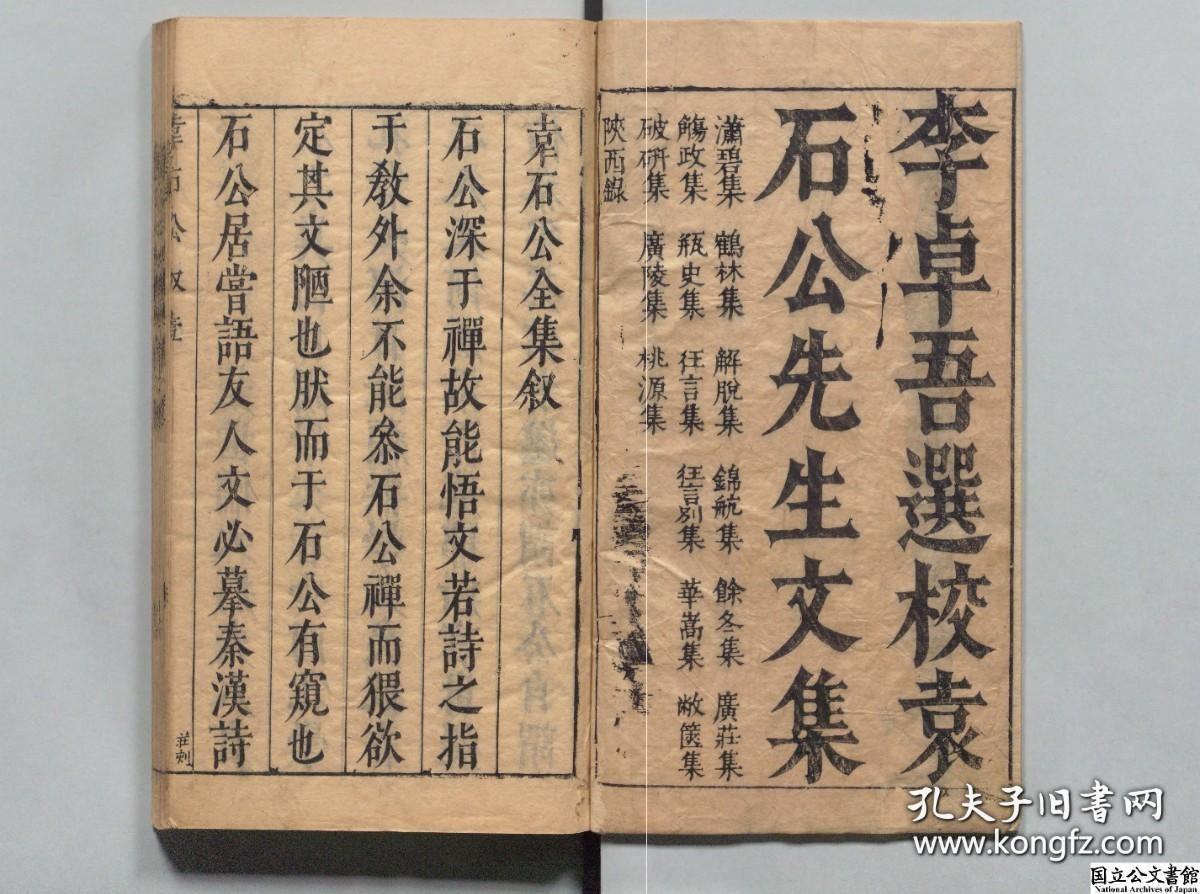 李卓吾選校袁
石公先生文集
瀟碧集 鶴林集 解脫集 錦航集 餘冬集 廣莊集
觴政集 瓶史集 狂言集 狂言別集 華嵩集 敝篋集
破研集 廣陵集 桃源集
陜西錄
袁石公全集叙
石公深于禪故能悟文若詩之指
于教外余不能叅石公禪而猥欲
定其文陋也肰而于石公有窺也
石公居嘗語友人文必摹秦漢詩
袁石公叙 壹
莊刻
孔夫子旧书网
www.kongfz.com
国立公文書館
National Archives of Japan